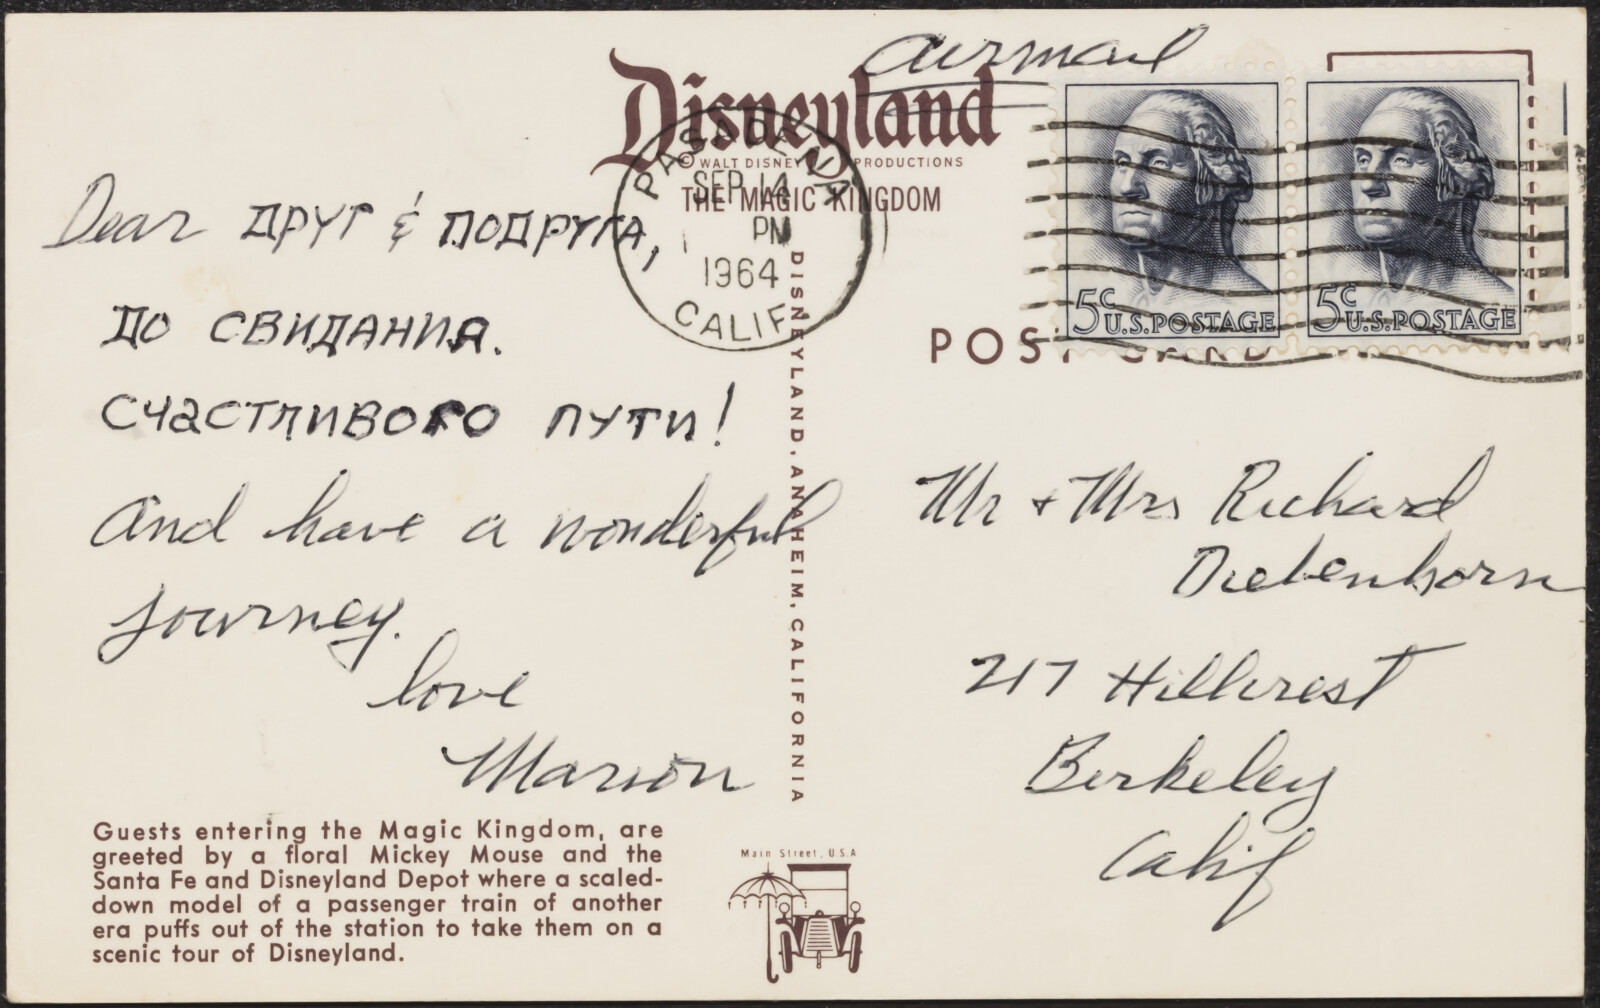 Airmail
Disneyland
© WALT DISNEY PRODUCTIONS
THE MAGIC KINGDOM
PASADENA
SEP 14
PM
1964
CALIF.
5c U.S. POSTAGE
5c U.S. POSTAGE
POST CARD
Dear ДРУГ & ПОДРУГА,
ДО СВИДАНИЯ.
СЧАСТЛИВОГО ПУТИ!
And have a wonderful
journey.
love
Marion
DISNEYLAND, ANAHEIM, CALIFORNIA
Mr + Mrs Richard
Diebenhorn
217 Hillcrest
Berkeley
Calif
Guests entering the Magic Kingdom, are
greeted by a floral Mickey Mouse and the
Santa Fe and Disneyland Depot where a scaled-
down model of a passenger train of another
era puffs out of the station to take them on a
scenic tour of Disneyland.
Main Street, U.S.A